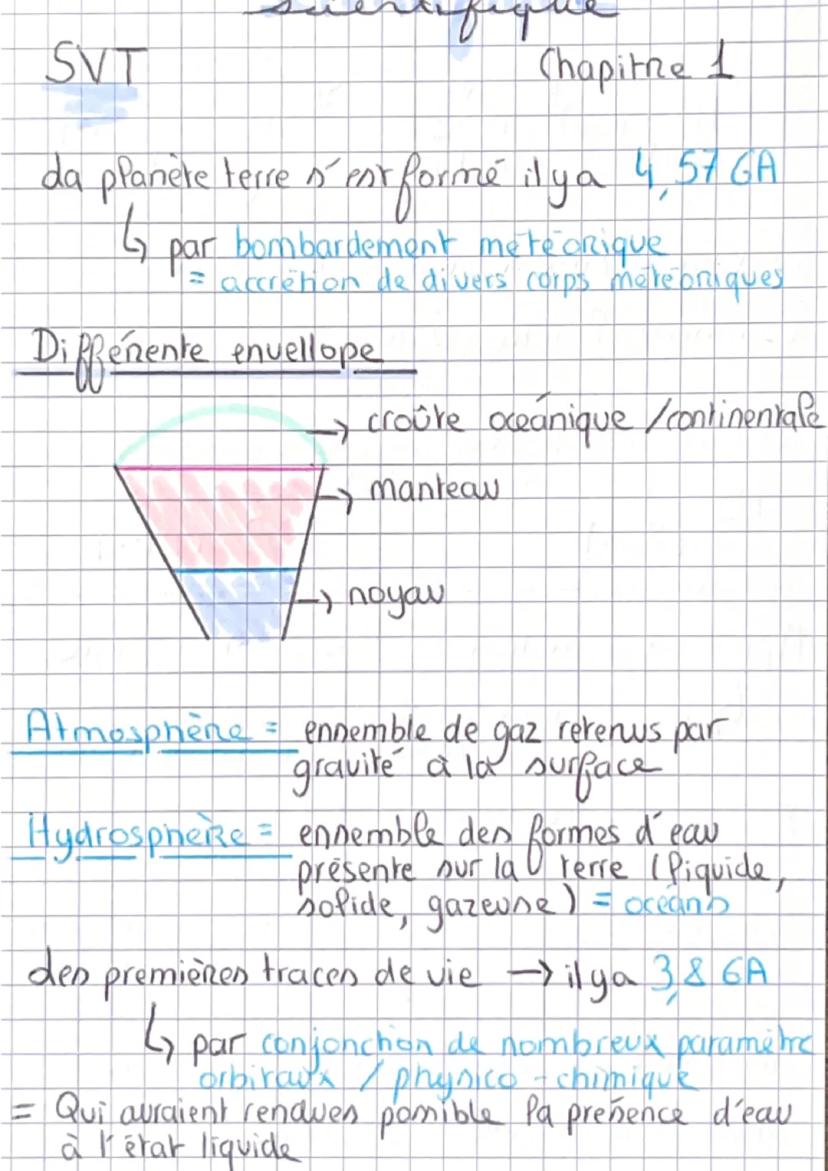 scientifique
SVT
Chapitre 1
La planète terre s'est formé il y a 4,57 GA
↳ par bombardement météorique
= accrétion de divers corps météoriques
Différente envellope
→ croûte océanique /continentale
→ manteau
→ noyau
Atmosphère = ensemble de gaz retenus par
gravité à la surface
Hydrosphère = ensemble des formes d'eau
présente sur la terre (liquide,
solide, gazeuse) = océans
Les premières traces de vie → il y a 3,8 GA
↳ par conjonction de nombreux paramètre
orbitaux / physico-chimique
= Qui auraient rendues possible la présence d'eau
à l'état liquide